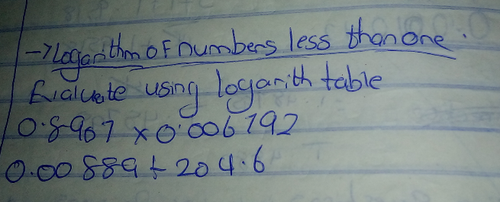 → Logarithm of numbers less than one.
Evaluate using logarith table
0.8967 × 0.006792
0.00889 ÷ 204.6